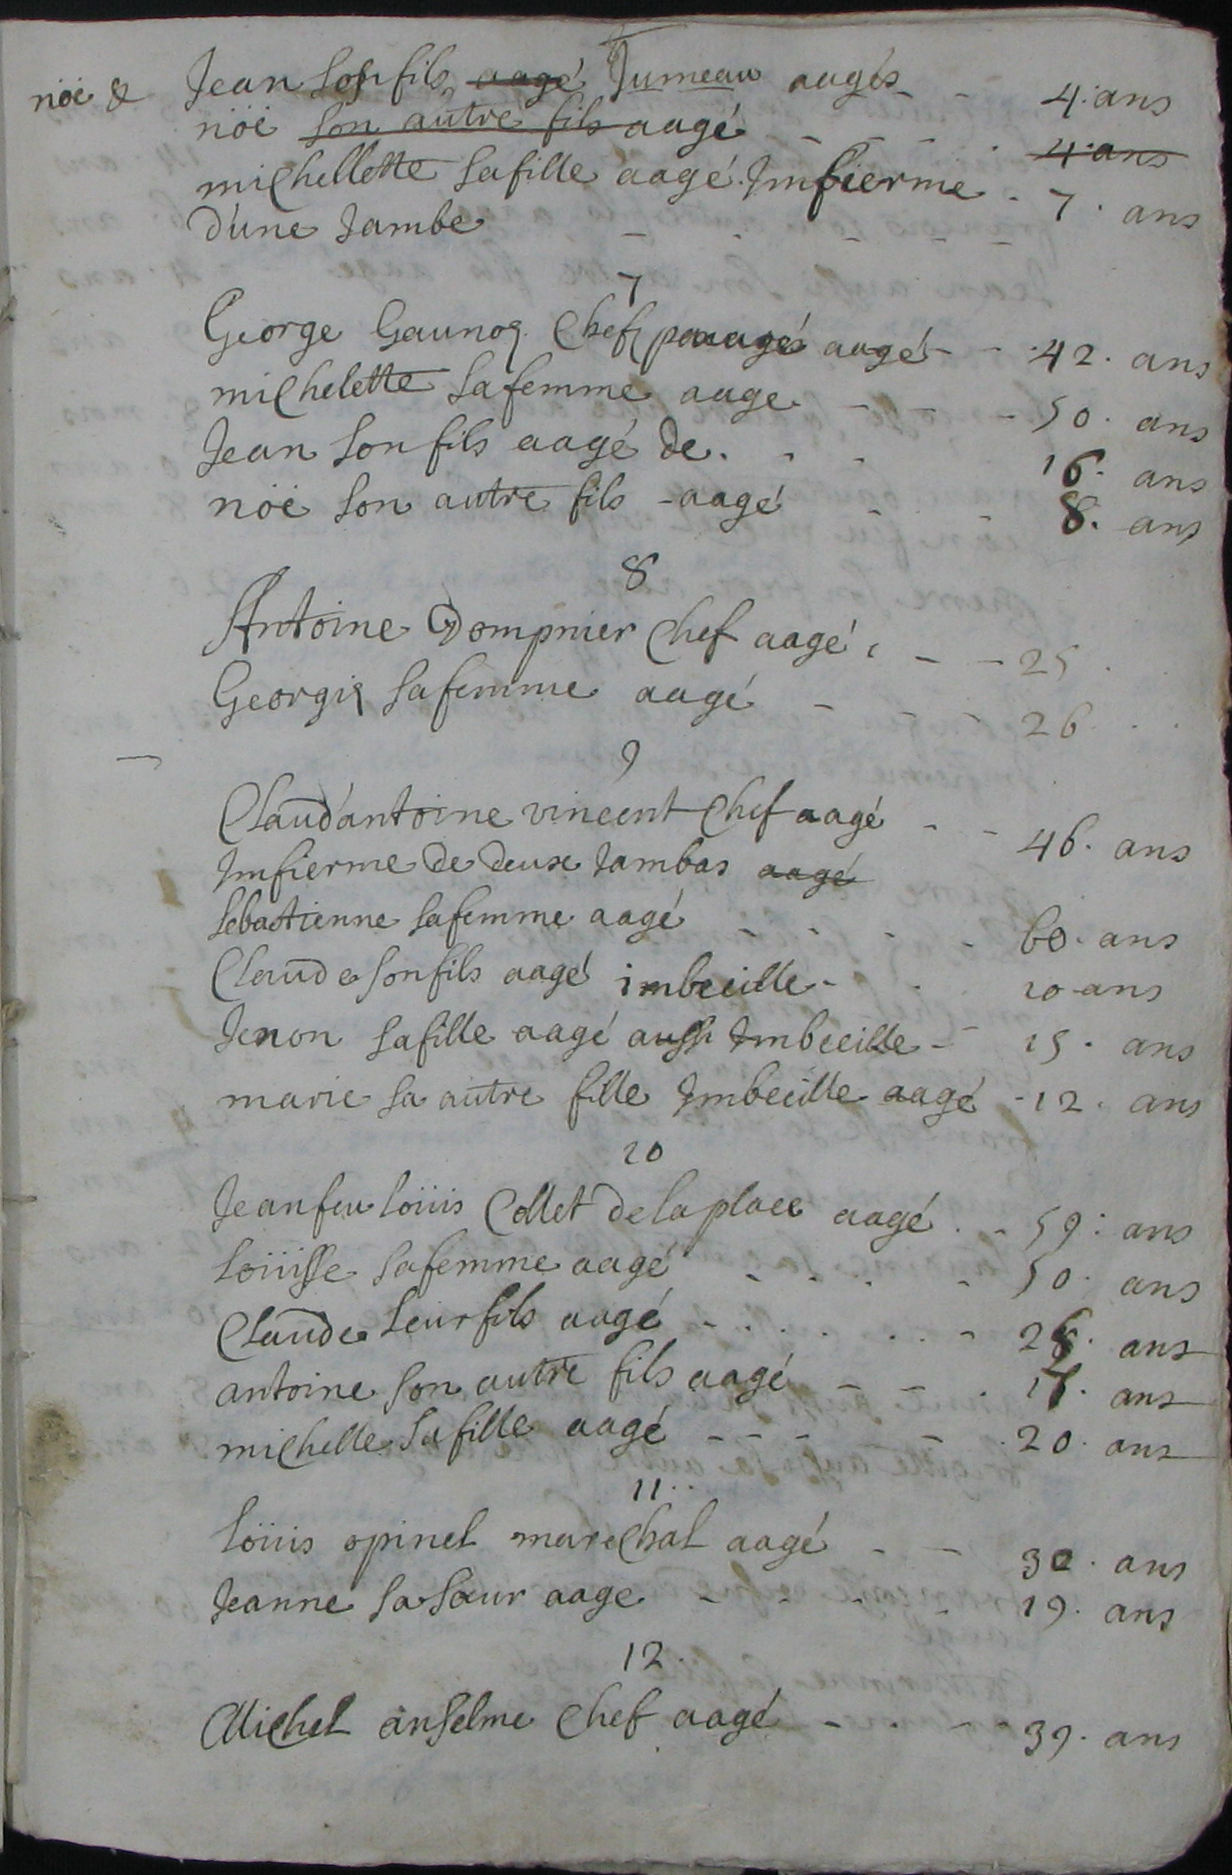 nöé & Jean son fils, aagé Jumeau aagés 4. ans
nöé son autre fils aagé 4. ans
michellette sa fille aagé. Imfierme 7. ans
d'une Jambe
7
George Gaunoz Chef aagé 42. ans
michelette sa femme aage 50. ans
Jean son fils aagé de 16. ans
nöé son autre fils aagé 8. ans
8
Antoine Dompnier Chef aagé 25
Georgiz sa femme aagé 26
9
Claud'antoine vincent Chef aagé 46. ans
Imfierme de deux Jambas aagé
sebastienne sa femme aagé 60. ans
Claude son fils aagé imbecille 20 ans
Jenon sa fille aagé aussi Imbecille 15. ans
marie sa autre fille Imbecille aagé 12. ans
10
Jean feu loüis Collet de la place aagé 59. ans
loüisse sa femme aagé 50. ans
Claude leur fils aagé ans
antoine son autre fils aagé ans
michelle sa fille aagé 20. ans
11
loüis opinel marechal aagé 30. ans
Jeanne sa sœur aage 19. ans
12.
Michel anselme Chef aagé 39. ans